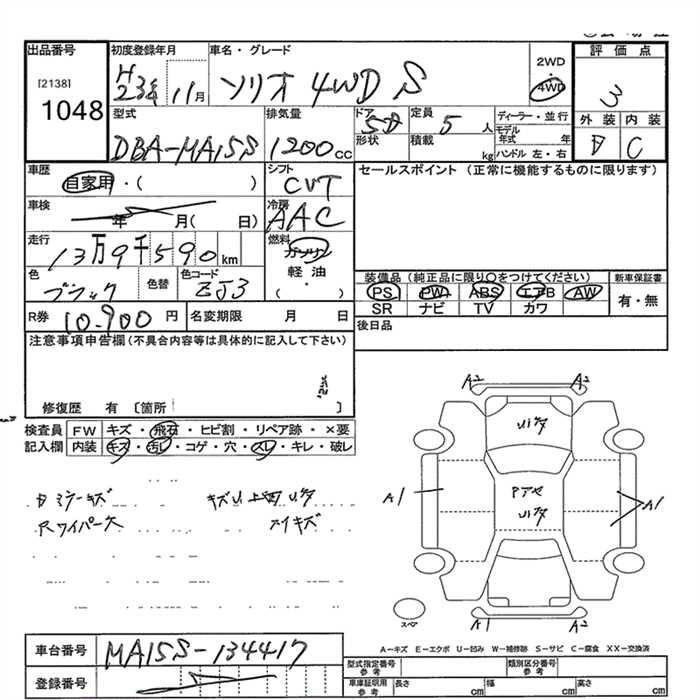 出品番号
[2138]
1048
初度登録年月
H23年 11月
車名・グレード
ソリオ 4WD S
2WD
・
4WD
評価点
3
外装 内装
D C
型式
DBA-MA15S
排気量
1200 cc
ドア
5D
形状
定員
5 人
積載
kg
ディーラー・並行
モデル年式 年
ハンドル 左・右
車歴
自家用・( )
シフト
CVT
セールスポイント (正常に機能するものに限ります)
車検
年 月( 日)
冷房
AAC
走行
13万9千590 km
燃料
ガソリン
軽油
( )
色
ブラック
色替
色コード
ZJ3
装備品 (純正品に限り○をつけてください)
PS PW ABS エアB AW
SR ナビ TV カワ
新車保証書
有・無
R券
10,900 円
名変期限 月 日
後日品
注意事項申告欄 (不具合内容等は具体的に記入して下さい)
修復歴 有 〔箇所 〕
検査員記入欄
FW キズ・飛石・ヒビ割・リペア跡・×要
内装 キズ・汚レ・コゲ・穴・スレ・キレ・破レ
A2 A2
A1 A1
A1 A2
スペ
A-キズ E-エクボ U-凹み W-補修跡 S-サビ C-腐食 XX-交換済
車台番号
MA15S-134417
登録番号
型式指定番号 参考
類別区分番号 参考
車庫証明用 参考
長さ cm
幅 cm
高さ cm